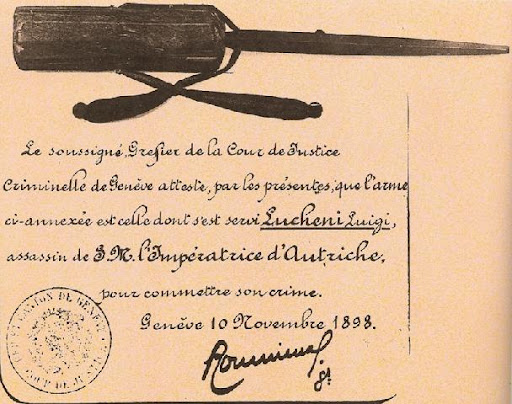 Le soussigné, Grefier de la Cour de Justice
Criminelle de Genève atteste, par les présentes, que l'arme
ci-annexée est celle dont s'est servi Lucheni Luigi,
assassin de S.M. l'Impératrice d'Autriche,
pour commettre son crime.
Genève 10 Novembre 1898.
CANTON DE GENÈVE
COUR DE JUSTICE